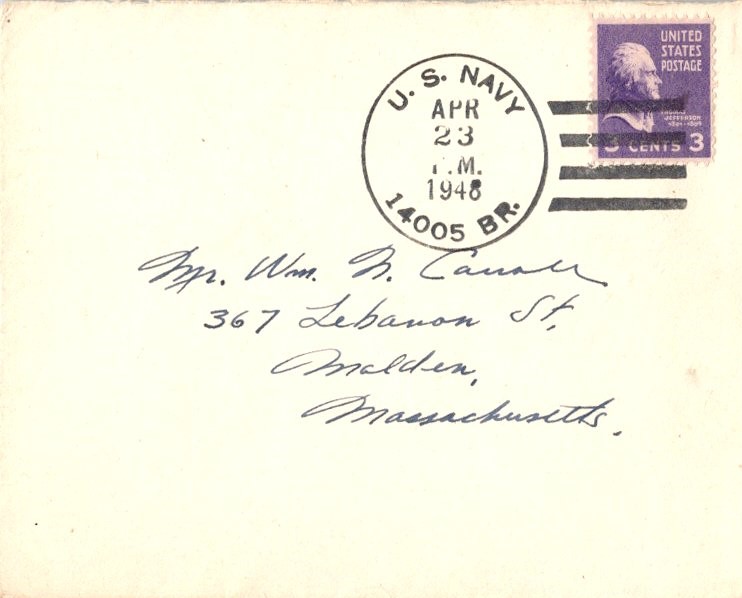 U. S. NAVY
APR
23
P.M.
1948
14005 BR.
UNITED
STATES
POSTAGE
THOMAS
JEFFERSON
1801-1809
3 CENTS 3
Mr. Wm. N. Carroll
367 Lebanon St,
Malden,
Massachusetts.